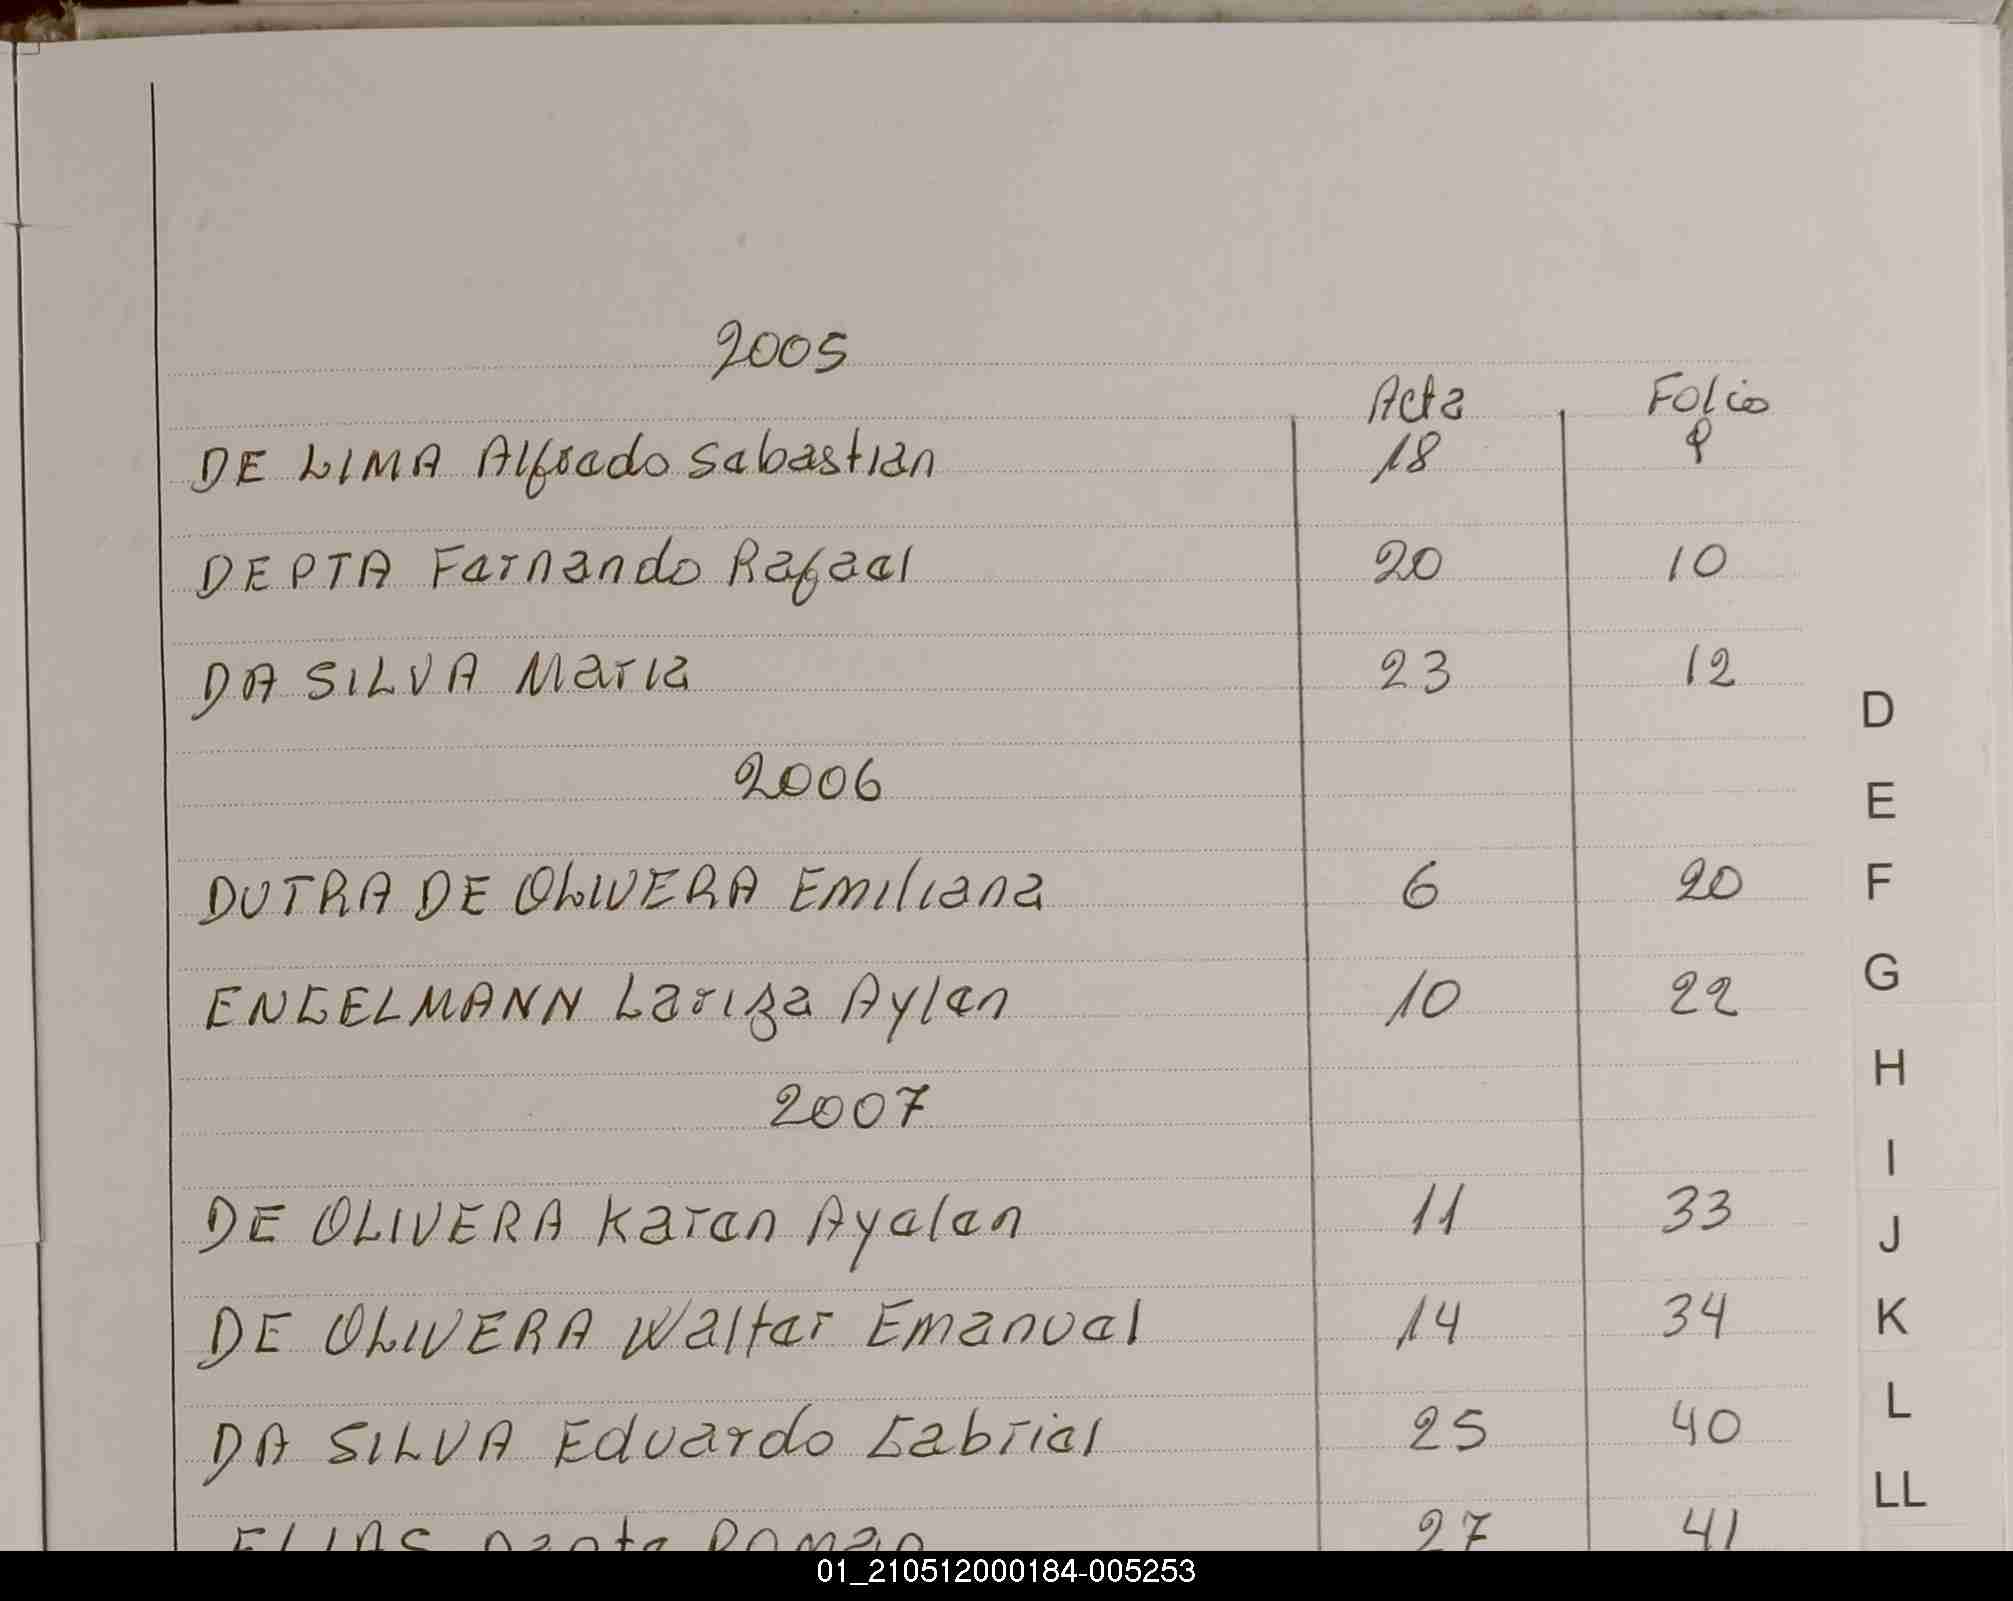 2005
Acta Folio
DE LIMA Alfredo Sebastian 18 9
DEPTA Fernando Rafael 20 10
DA SILVA Maria 23 12
D
2006
E
DUTRA DE OLIVERA Emiliana 6 20
F
ENGELMANN Lariza Aylen 10 22
G
H
2007
I
DE OLIVERA Karen Ayelen 11 33
J
DE OLIVERA Walter Emanuel 14 34
K
DA SILVA Eduardo Gabriel 25 40
L
LL
ELIAS Dante Roman 27 41
01_210512000184-005253